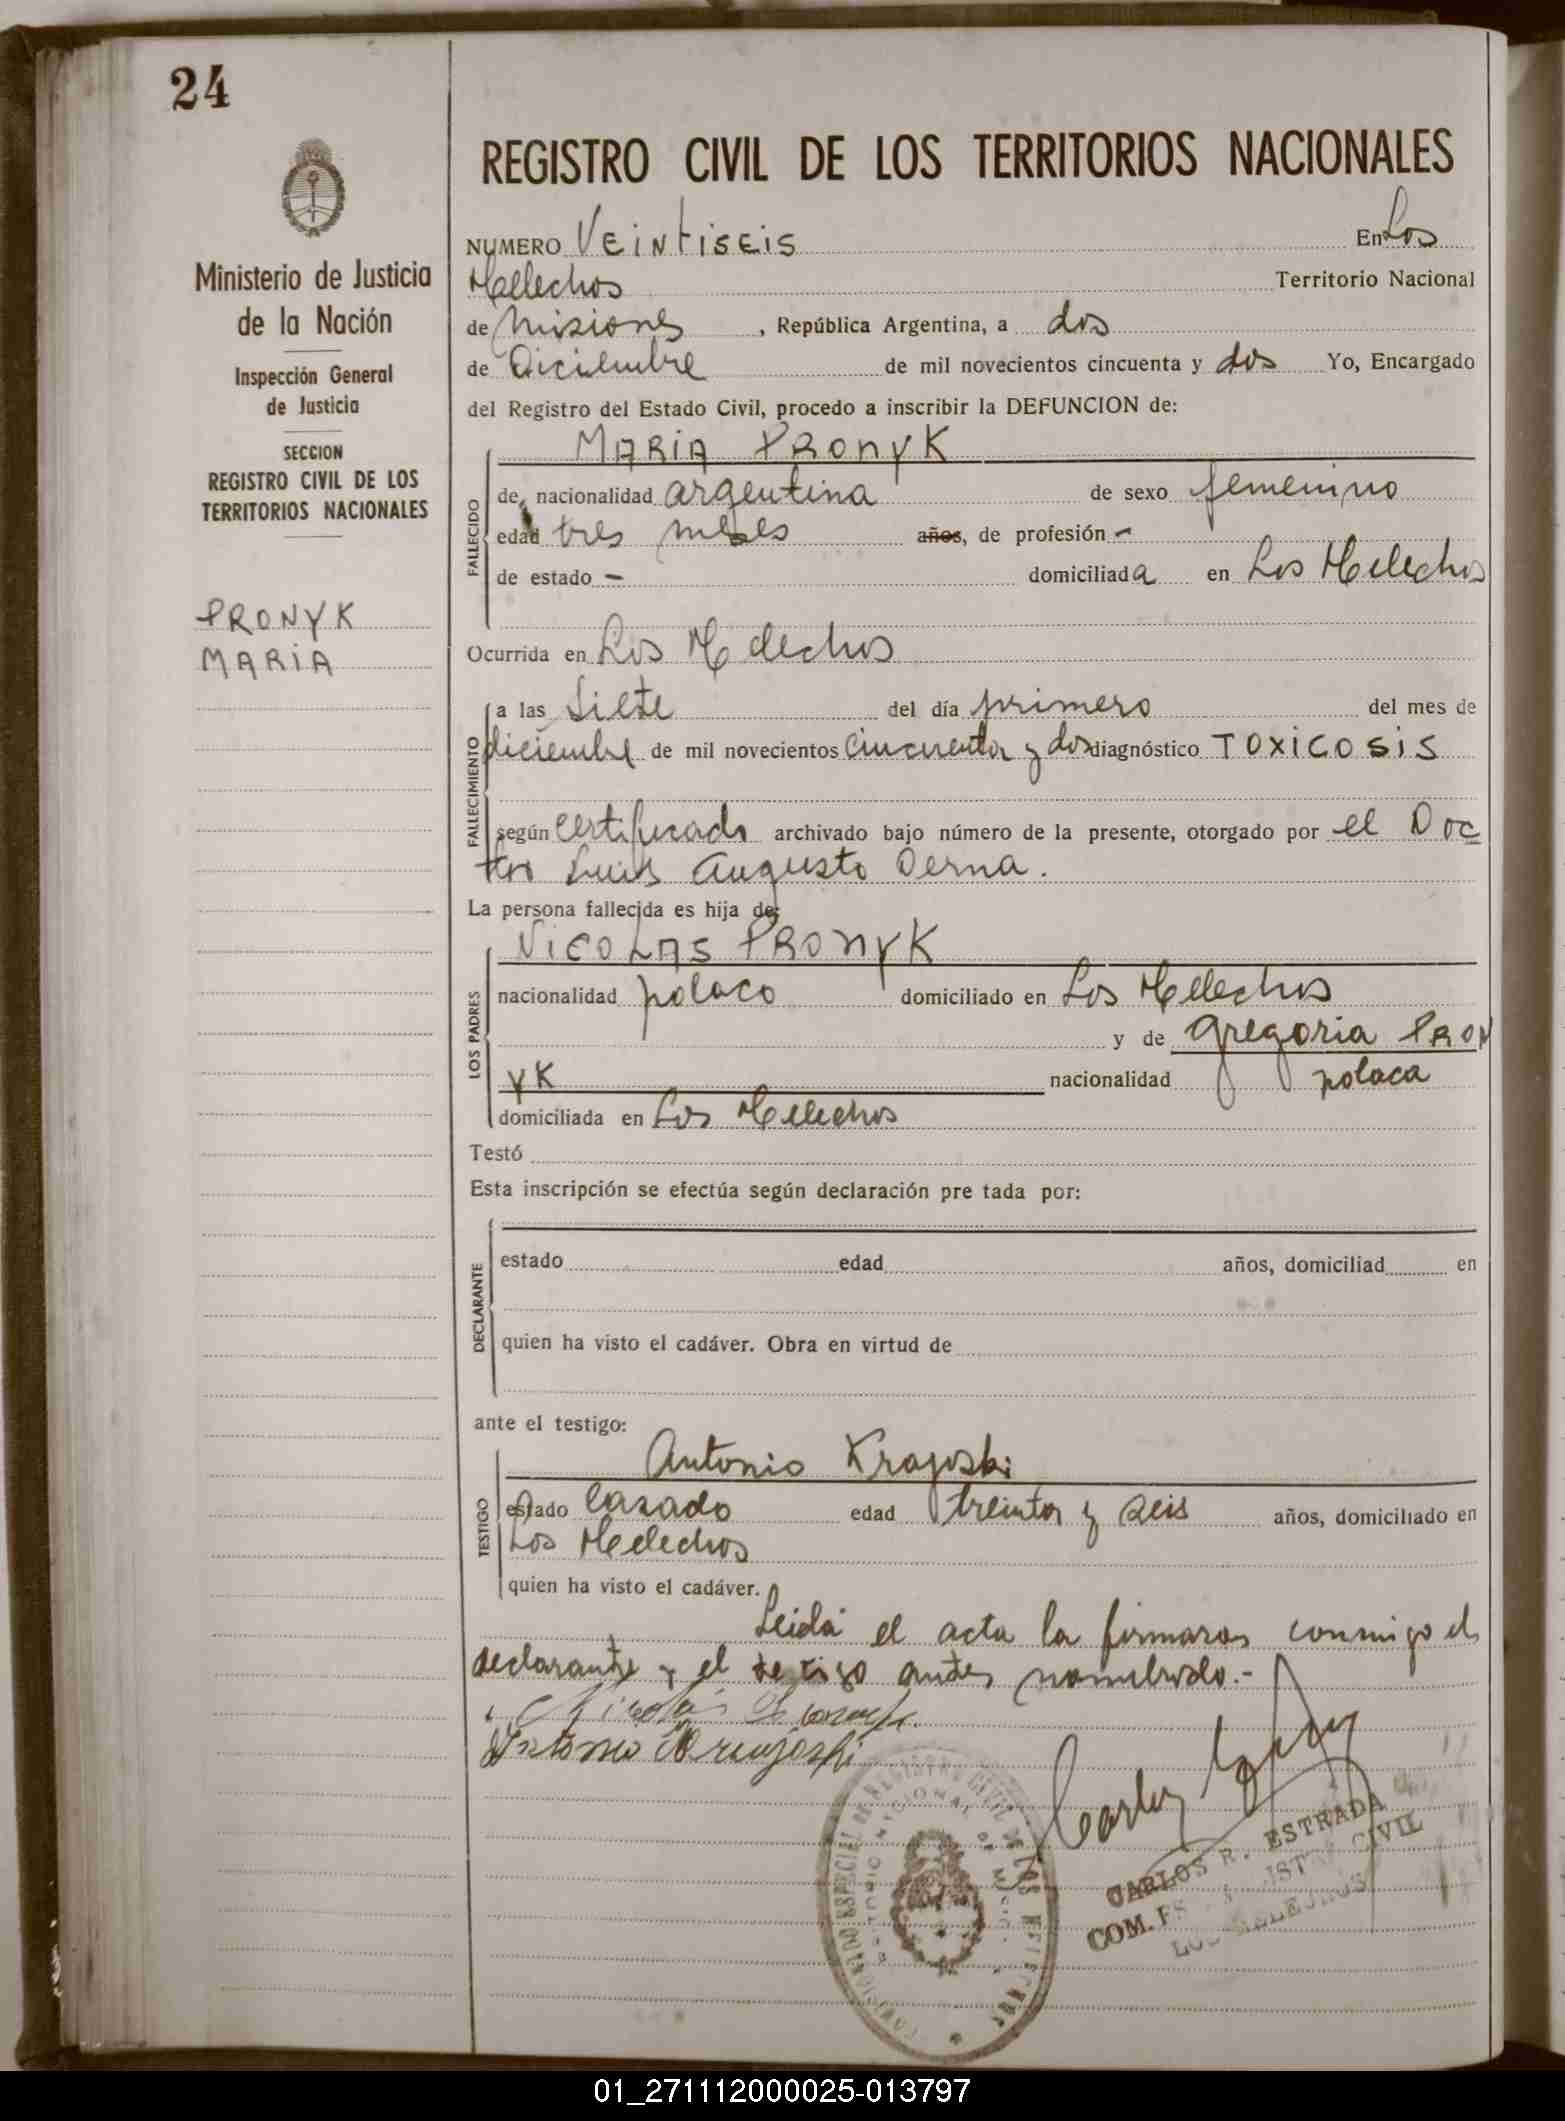 24
REGISTRO CIVIL DE LOS TERRITORIOS NACIONALES
Ministerio de Justicia
de la Nación
Inspección General
de Justicia
SECCION
REGISTRO CIVIL DE LOS
TERRITORIOS NACIONALES
PRONYK
MARIA
NUMERO VEINTISEIS En Los
Helechos Territorio Nacional
de Misiones, República Argentina, a dos
de Diciembre de mil novecientos cincuenta y dos Yo, Encargado
del Registro del Estado Civil, procedo a inscribir la DEFUNCION de:
MARIA PRONYK
FALLECIDO
de nacionalidad argentina de sexo femenino
edad tres meses años, de profesión -
de estado - domiciliada en Los Helechos
Ocurrida en Los Helechos
FALLECIMIENTO
a las siete del día primero del mes de
diciembre de mil novecientos cincuenta y dos diagnóstico TOXICOSIS
según certificado archivado bajo número de la presente, otorgado por el Doc
tor Luis Augusto Derna.
La persona fallecida es hija de:
LOS PADRES
NICOLAS PRONYK
nacionalidad polaco domiciliado en Los Helechos
y de Gregoria PRON
YK nacionalidad polaca
domiciliada en Los Helechos
Testó
Esta inscripción se efectúa según declaración pre tada por:
DECLARANTE
estado edad años, domiciliad en
quien ha visto el cadáver. Obra en virtud de
ante el testigo:
TESTIGO
Antonio Krajoski
estado casado edad treinta y seis años, domiciliado en
Los Helechos
quien ha visto el cadáver.
Leida el acta la firmaron conmigo el
declarante y el testigo antes nombrado.-
Antonio
CARLOS R. ESTRADA
COM. CIVIL
01_271112000025-013797